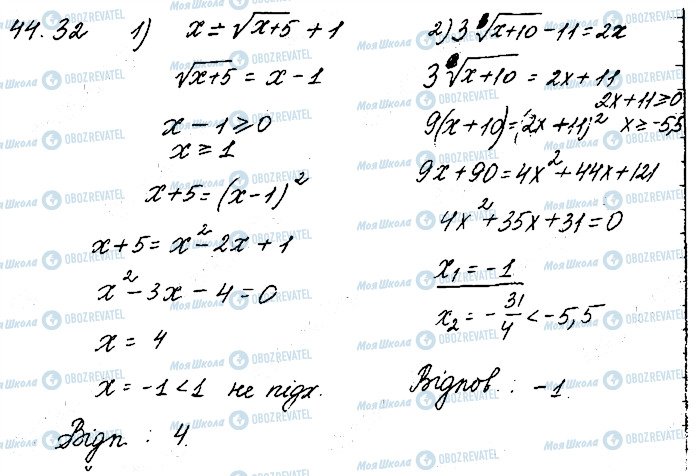 44.32 1) x = √(x+5) + 1
√(x+5) = x - 1
x - 1 ≥ 0
x ≥ 1
x+5 = (x-1)²
x+5 = x² - 2x + 1
x² - 3x - 4 = 0
x = 4
x = -1 < 1 не підх.
Відп : 4.
2) 3√(x+10) - 11 = 2x
3√(x+10) = 2x + 11
2x + 11 ≥ 0
9(x+10) = (2x+11)² x ≥ -5,5
9x + 90 = 4x² + 44x + 121
4x² + 35x + 31 = 0
x₁ = -1
x₂ = -31/4 < -5,5
Відпов : -1.
Моя Школа OBOZREVATEL